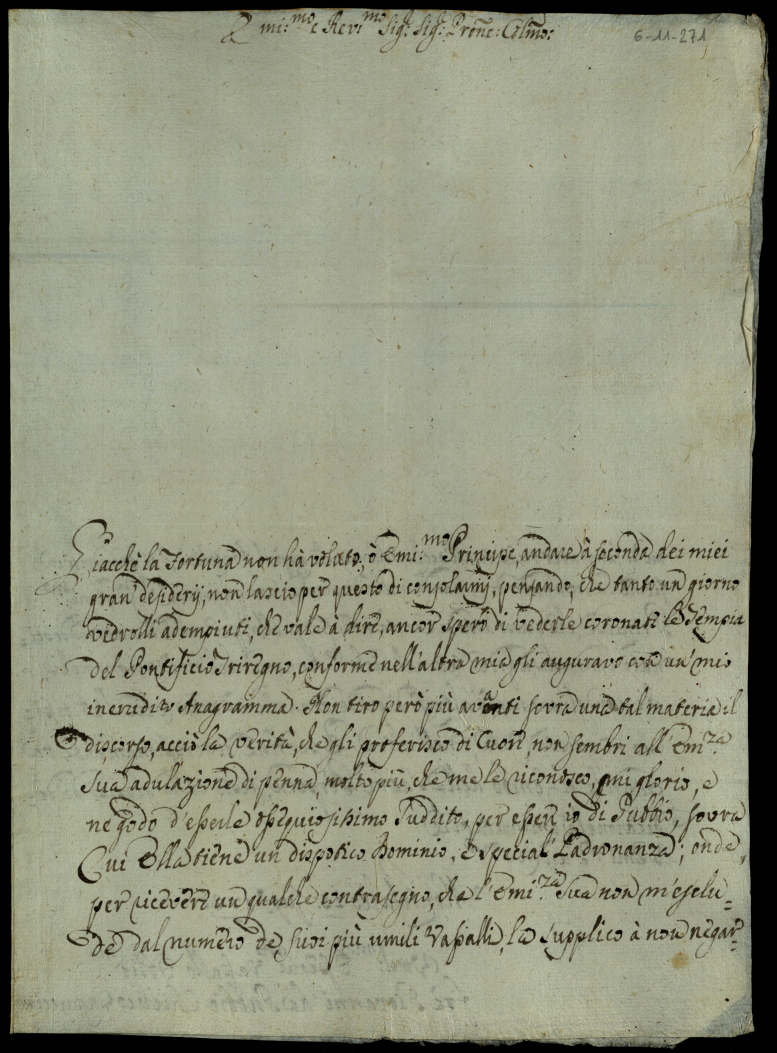 Emi:mo e Revmo Sig: Sig: Prone: Colmo:
6-11-271
Giacchè la Fortuna non hà voluto, ò Emi:mo Principe, andare à seconda dei miei
gran desiderij, non lascio per questo di consolarmi, pensando, che tanto un giorno
vedrolli adempiuti, che vale à dire, ancor spero di vederle coronate le Tempia
del Pontificio Triregno, conforme nell'altra mia gli auguravo con un' mio
inerudito Anagramma. Non tiro però più avanti sovra una tal materia il
discorso, acciò la verità, che gli proferisco di Cuore, non sembri all' Emi:za
Sua adulazione di penna, molto più, che me le riconosco, mi glorio, e
ne godo d'esserle ossequiosissimo Suddito, per esser io di Gubbio, sovra
Cui Ella tiene un dispotico Dominio, e special' Padronanza; onde,
per ricevere un qualche contrasegno, che l' Emi:za Sua non m'esclu=
de dal numero de suoi più umili Vassalli, la supplico à non negar=